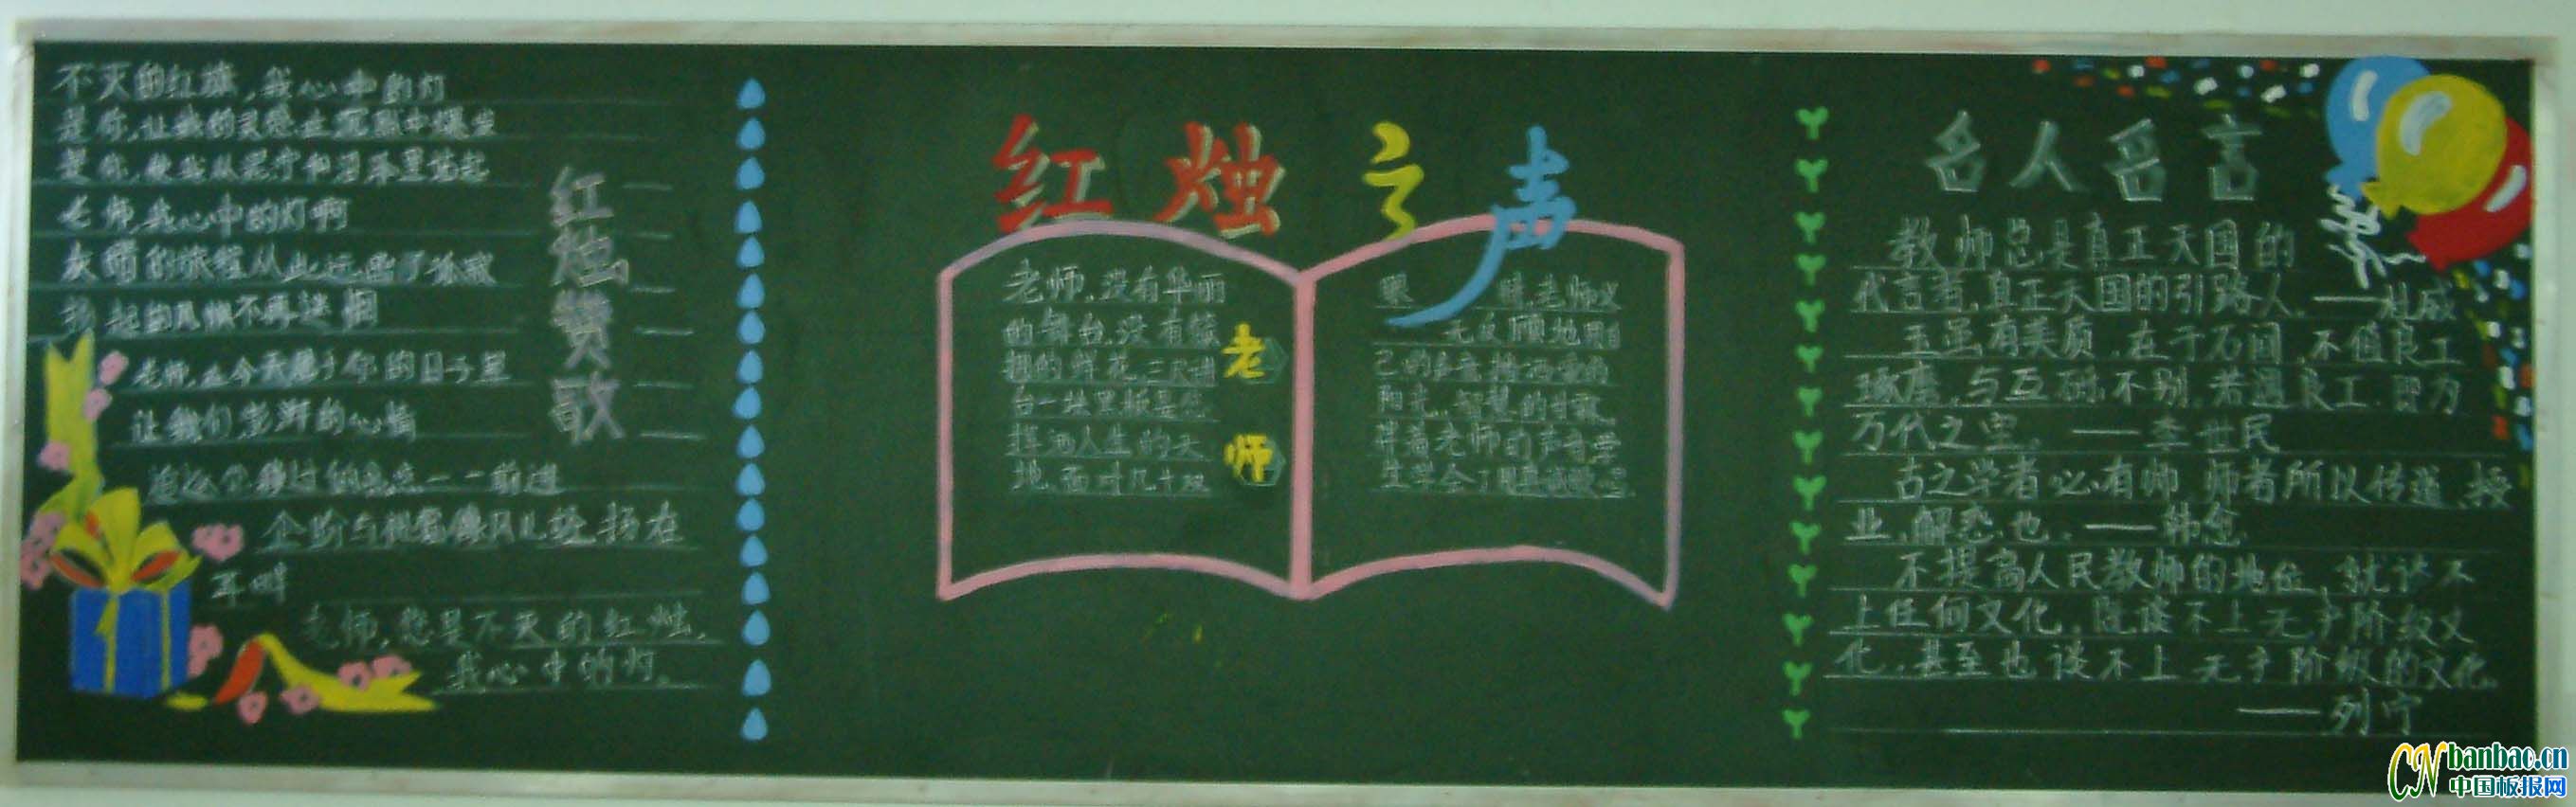 不灭的红旗,我心中的灯
是你,让我的灵感在沉默中爆发
是你,使我从
老师我心中的灯啊
灰暗的旅程从此远离了
老师,在今天属于你的日子里
让我们澎湃的心情
耳畔
老师,您是不灭的红烛,
我心中的灯。
红烛赞歌
红烛之声
老师,没有华丽
的舞台,没有簇
拥的鲜花,三尺讲
台一块黑板是您
挥洒人生的天
地,面对几十双
老师
眼睛老师义
无反顾地用自
己的
阳光,智慧的甘露,
伴着老师的声音学
生学会了
名人名言
教师总是真正天国的
代言者,真正天国的引路人。——杜威
玉虽有美质,在于石间,不值良工
琢磨,与瓦砾不别,若遇良工,即为
万代之宝。——李世民
古之学者必有师,师者所以传道、授
业、解惑也。——韩愈
不提高人民教师的地位,就谈不
上任何文化,既谈不上无产阶级文
化,甚至也谈不上无产阶级的文化。
——列宁
CN banbao.cn
中国板报网